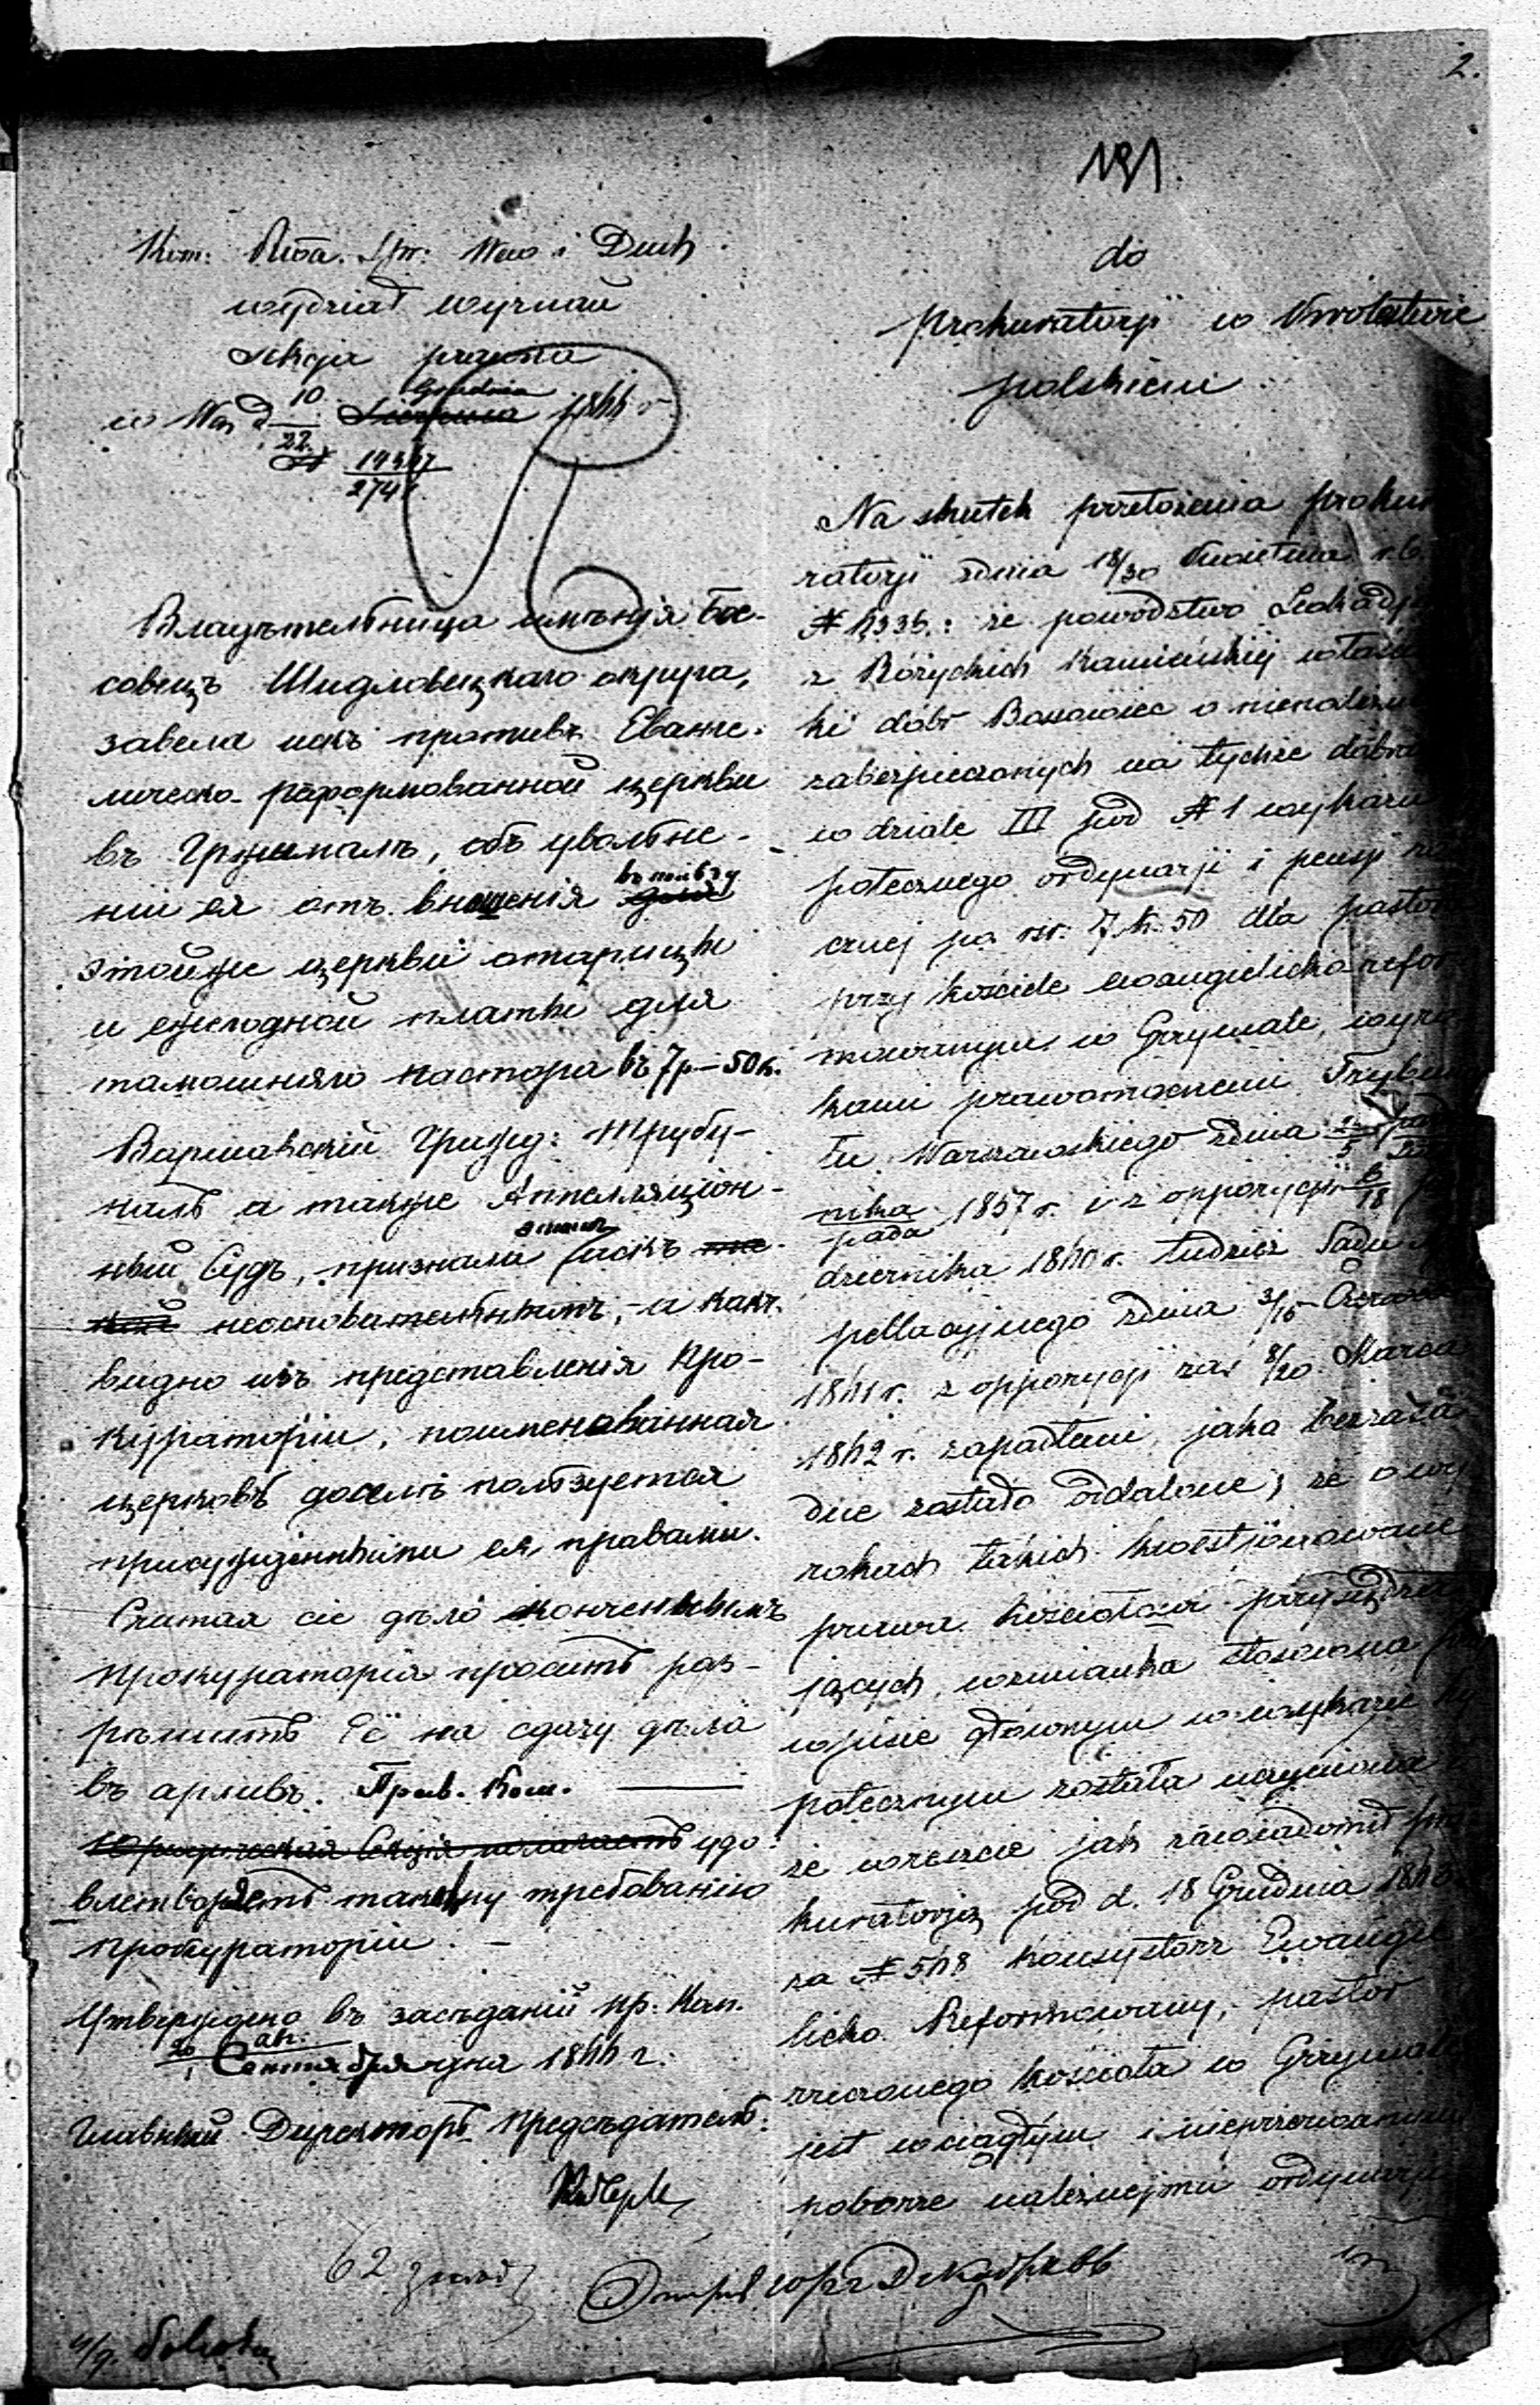 2.
191.
Kom: Rzą. Spr: Wew i Duch
wydział wyznań
Sekcja
w War d 10/22 Grudnia 1844 r
№ 19317/274
Владѣтельница имѣнія Бос-
совецъ Шидловецкаго округа,
завела искъ противъ Еванге-
лическо-реформованной церкви
въ Гржималѣ, объ увольне-
ніи ея отъ внесенія въ пользу
этойже церкви
и ежегодной платы для
тамошняго пастора въ 7 р – 50 к.
Варшавскій Гражд: Трибу-
налъ а также Аппелляціон-
ный Судъ, признали искъ
неосновательнымъ, – и какъ
видно изъ представленія Про-
кураторіи, поименованная
церковь доселѣ пользуется
присужденными ея правами.
Считая сіе дѣло конченнымъ
Прокураторія проситъ раз-
рѣшить Её на сдачу дѣла
въ архивъ. Прав. Ком.
Юридическая Секція удо
влетворяетъ такому требованію
Прокураторіи. –
Утверждено въ засѣданіи Пр. Ком.
Сентября дня 1844 г.
Главный Директоръ Предсѣдатель.
do
Prokuratorji w Królestwie
polskiem
Na skutek przełożenia proku
ratorji z dnia 18/30 Kwietnia r. b.
№ 4336.: że powództwo Leokadji
z Bóżyckich Kamieńskiej właściciel
ki dóbr Bossowiec o nienależnie
zabezpieczonych na tychże dobrach
w dziale III pod № 1 wykazu
potecznego ordynarji i pensji ro
cznej po rsr: 7 k. 50 dla pastora
przy kościele ewangelicko refor
mowanym w Grzymale, wyro
kami prawomocnemi Trybuna
łu Warszawskiego z dnia
nika 1837 r. i z oppozycji 6/18 paź
dziernika 1840 r. tudzież Sądu Ap
pellacyjnego z dnia 3/15 Czerwca
1841 r. z oppozycji zaś 8/20 Marca
1842 r. zapadłemi, jako bezzasa
dne zostało oddalone; że o wy
rokach takich kwestjonowane
prawa kościołowi przysądza
jących, wzmianka stosowna przy
wpisie głównym w wykazie hy
potecznym została uczyniona i
że wreszcie jak zawiadomił pro
kuratorją pod d. 18 Grudnia 1843
za № 548 Konsystorz Ewange
licko Reformowany, pastor
rzeczonego kościoła w Grzymale
jest w ciągłym i nieprzerwanym
poborze należnej mu ordynarji